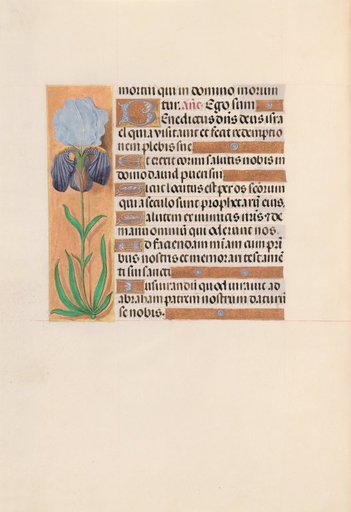 mortui qui in domino moriun
tur. añe. Ego sum
Benedictus dñs deus isra
el quia visitavit et fecit redemptio
nem plebis sue
Et erexit cornu salutis nobis in
domo david pueri sui
Sicut locutus est per os sc̃orum
qui a seculo sunt prophetarum eius.
Salutem ex inimicis nr̃is ⁊ de
manu omnium qui oderunt nos.
Ad faciendam mi͂am cum pr̃i
bus nostris et memorari testame͂
ti sui sancti
Iusiurandũ quod iuravit ad
abraham patrem nostrum daturũ
se nobis.